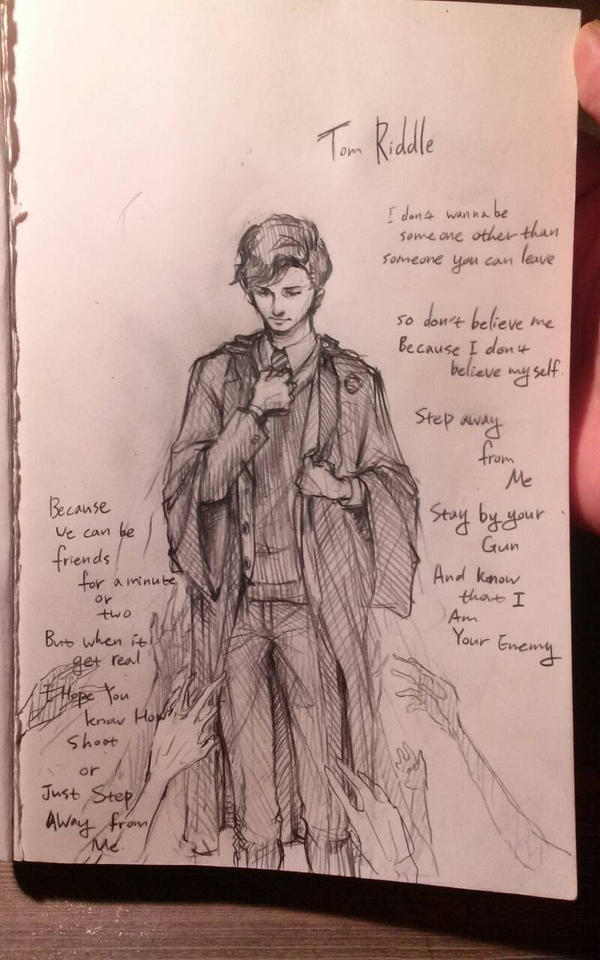 Tom Riddle
I don't wanna be
someone other than
someone you can leave
so don't believe me
Because I don't
believe myself.
Step away
from
Me
Stay by your
Gun
And know
that I
Am
Your Enemy
Because
We can be
friends
for a minute
or
two
But when it
get real
I Hope You
know How
Shoot
or
Just Step
Away from
Me.